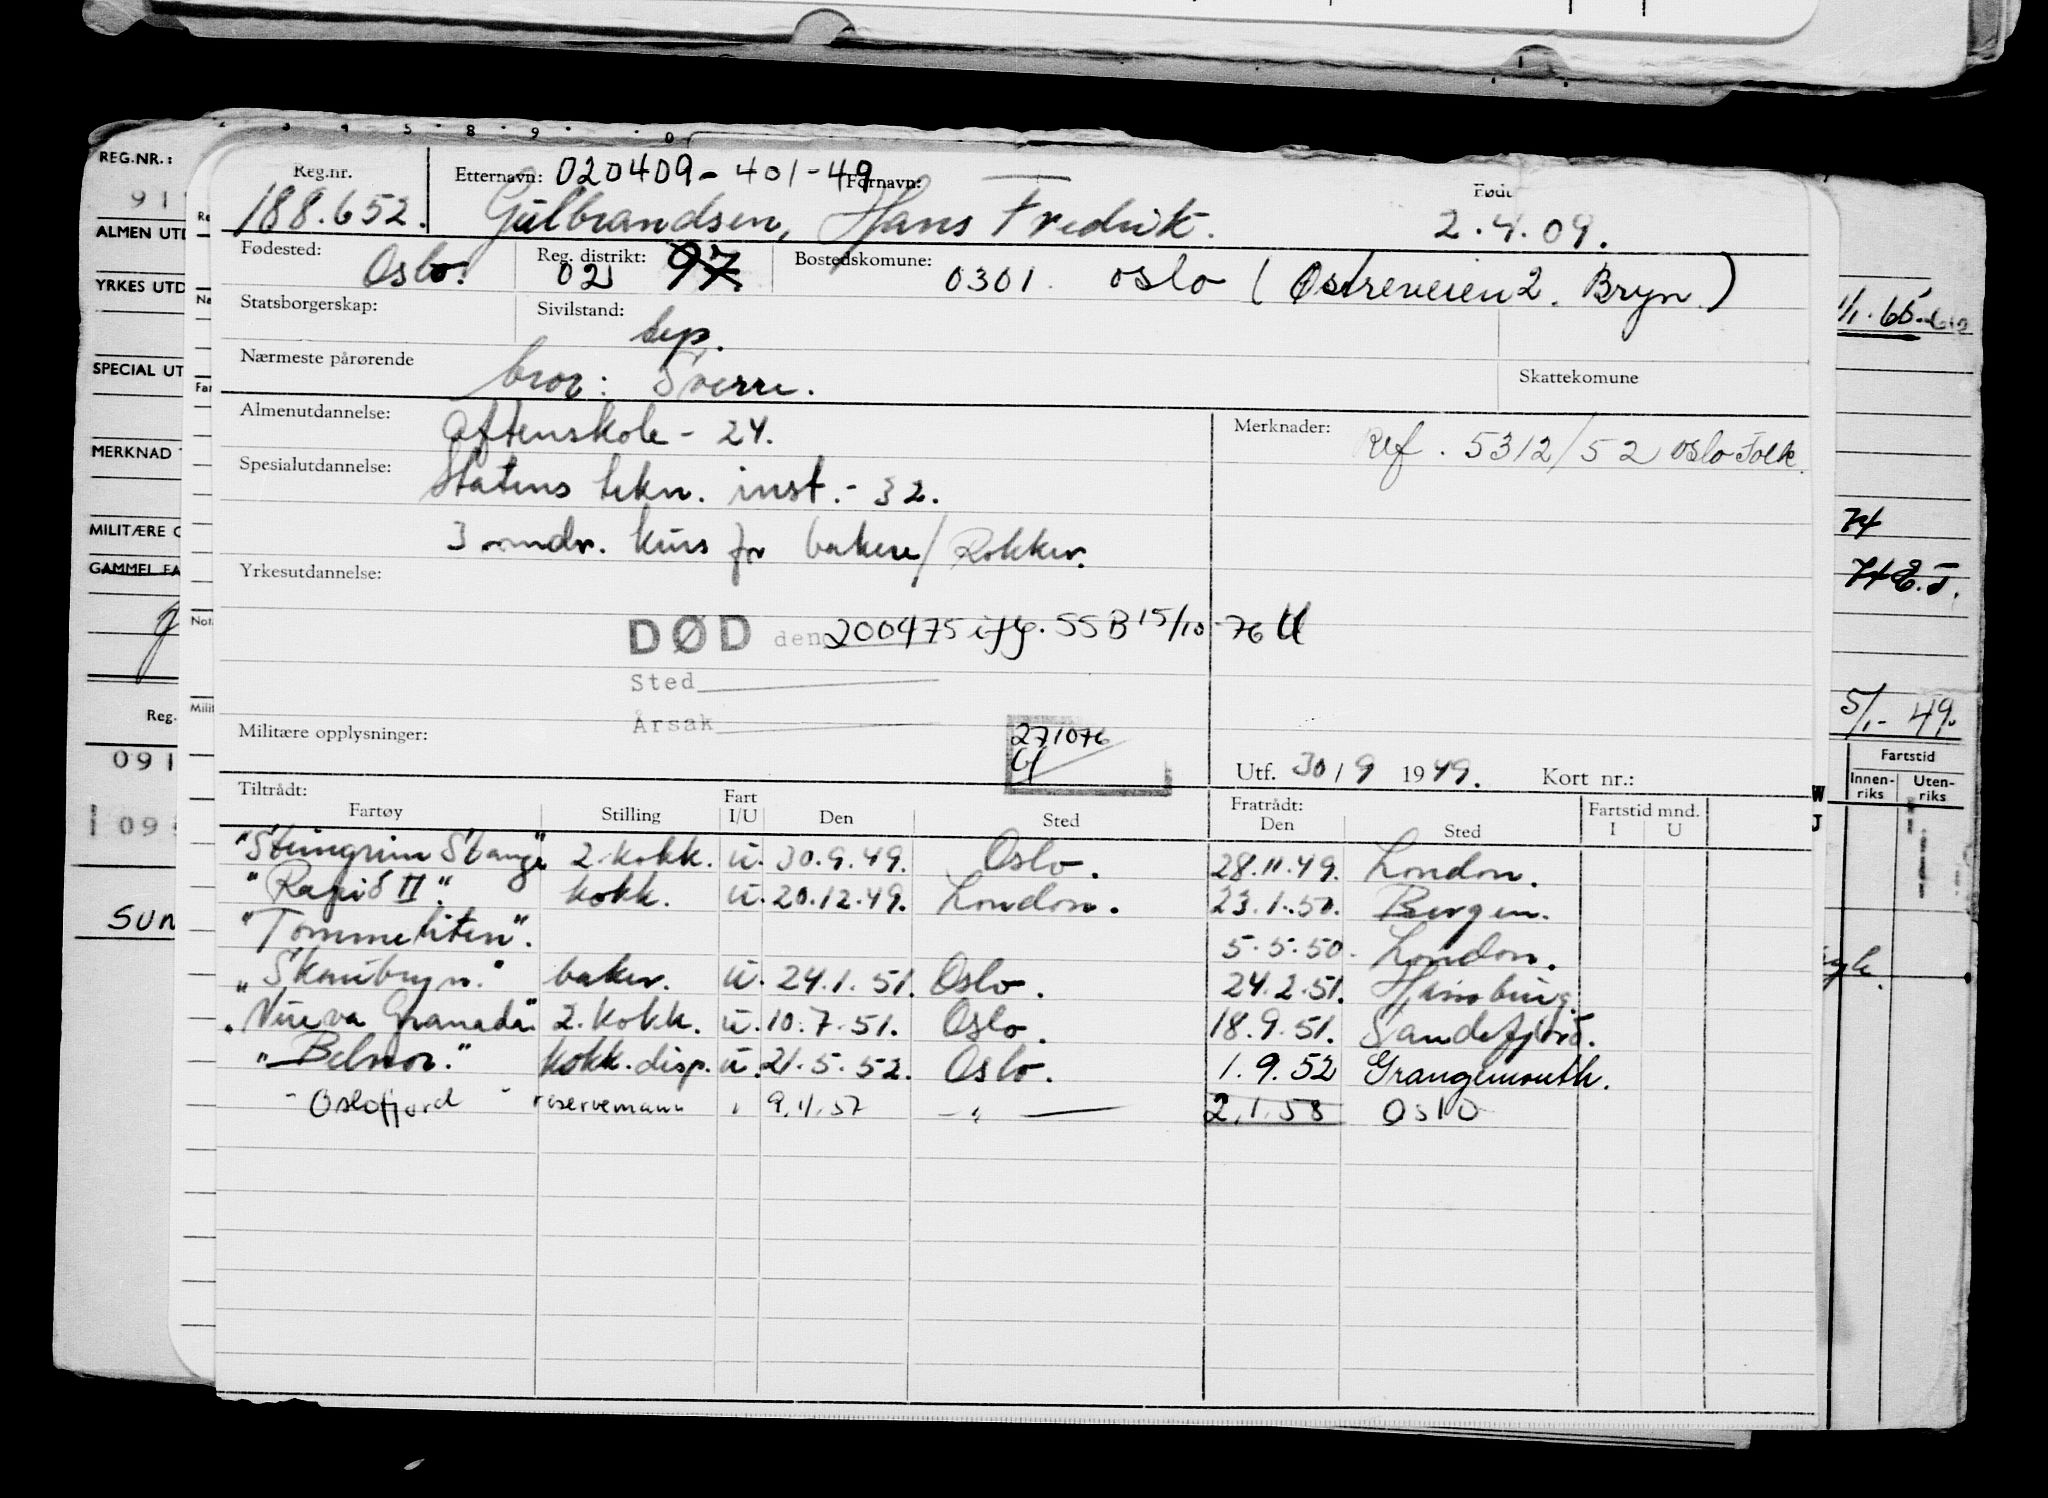 REG.NR.:
91
ALMEN UTD
YRKES UTD
SPECIAL UT
MERKNAD
MILITÆRE O
GAMMEL FA
Reg.
091
09
SUN
Reg.nr. Etternavn: 020409-401-49 Fornavn: Født
188.652. Gulbrandsen, Hans Fredrik. 2.4.09.
Fødested: Oslo. Reg. distrikt: 02 97 Bostedskomune: 0301 Oslo (Østreveien 2. Bryn)
Statsborgerskap: Sivilstand: sep.
Nærmeste pårørende bror: Sverre. Skattekomune
Almenutdannelse: aftenskole - 24. Merknader: Ref. 5312/52 Oslo Folk.
Spesialutdannelse: Statens tekn. inst. - 32.
3 mndr. kurs for bakere/Kokker.
Yrkesutdannelse:
DØD den 200475 iflg. SSB 15/10-76
Sted
Årsak
Militære opplysninger: 271076
Utf. 30/9 1949. Kort nr.:
Tiltrådt: Fratrådt: Fartstid mnd.
Fartøy Stilling Fart I/U Den Sted Den Sted I U
"Steingrim Stange" 2. kokk. u. 30.9.49. Oslo. 28.11.49. London.
"Rapid II". kokk. u. 20.12.49. London. 23.1.50. Bergen.
"Tommeliten". 5.5.50. London.
"Skaubryn." baker. u. 24.1.51. Oslo. 24.2.51. Hamburg.
"Nueva Granada" 2. kokk. u. 10.7.51. Oslo. 18.9.51. Sandefjord.
"Belnor." kokk. disp. u. 21.5.52. Oslo. 1.9.52 Grangemouth.
- Oslofjord - reservemann " 9.11.57 - " - 2.1.58 Oslo
1/1.65.
74
5/1-49.
Fartstid
Innen-riks Uten-riks
W
J